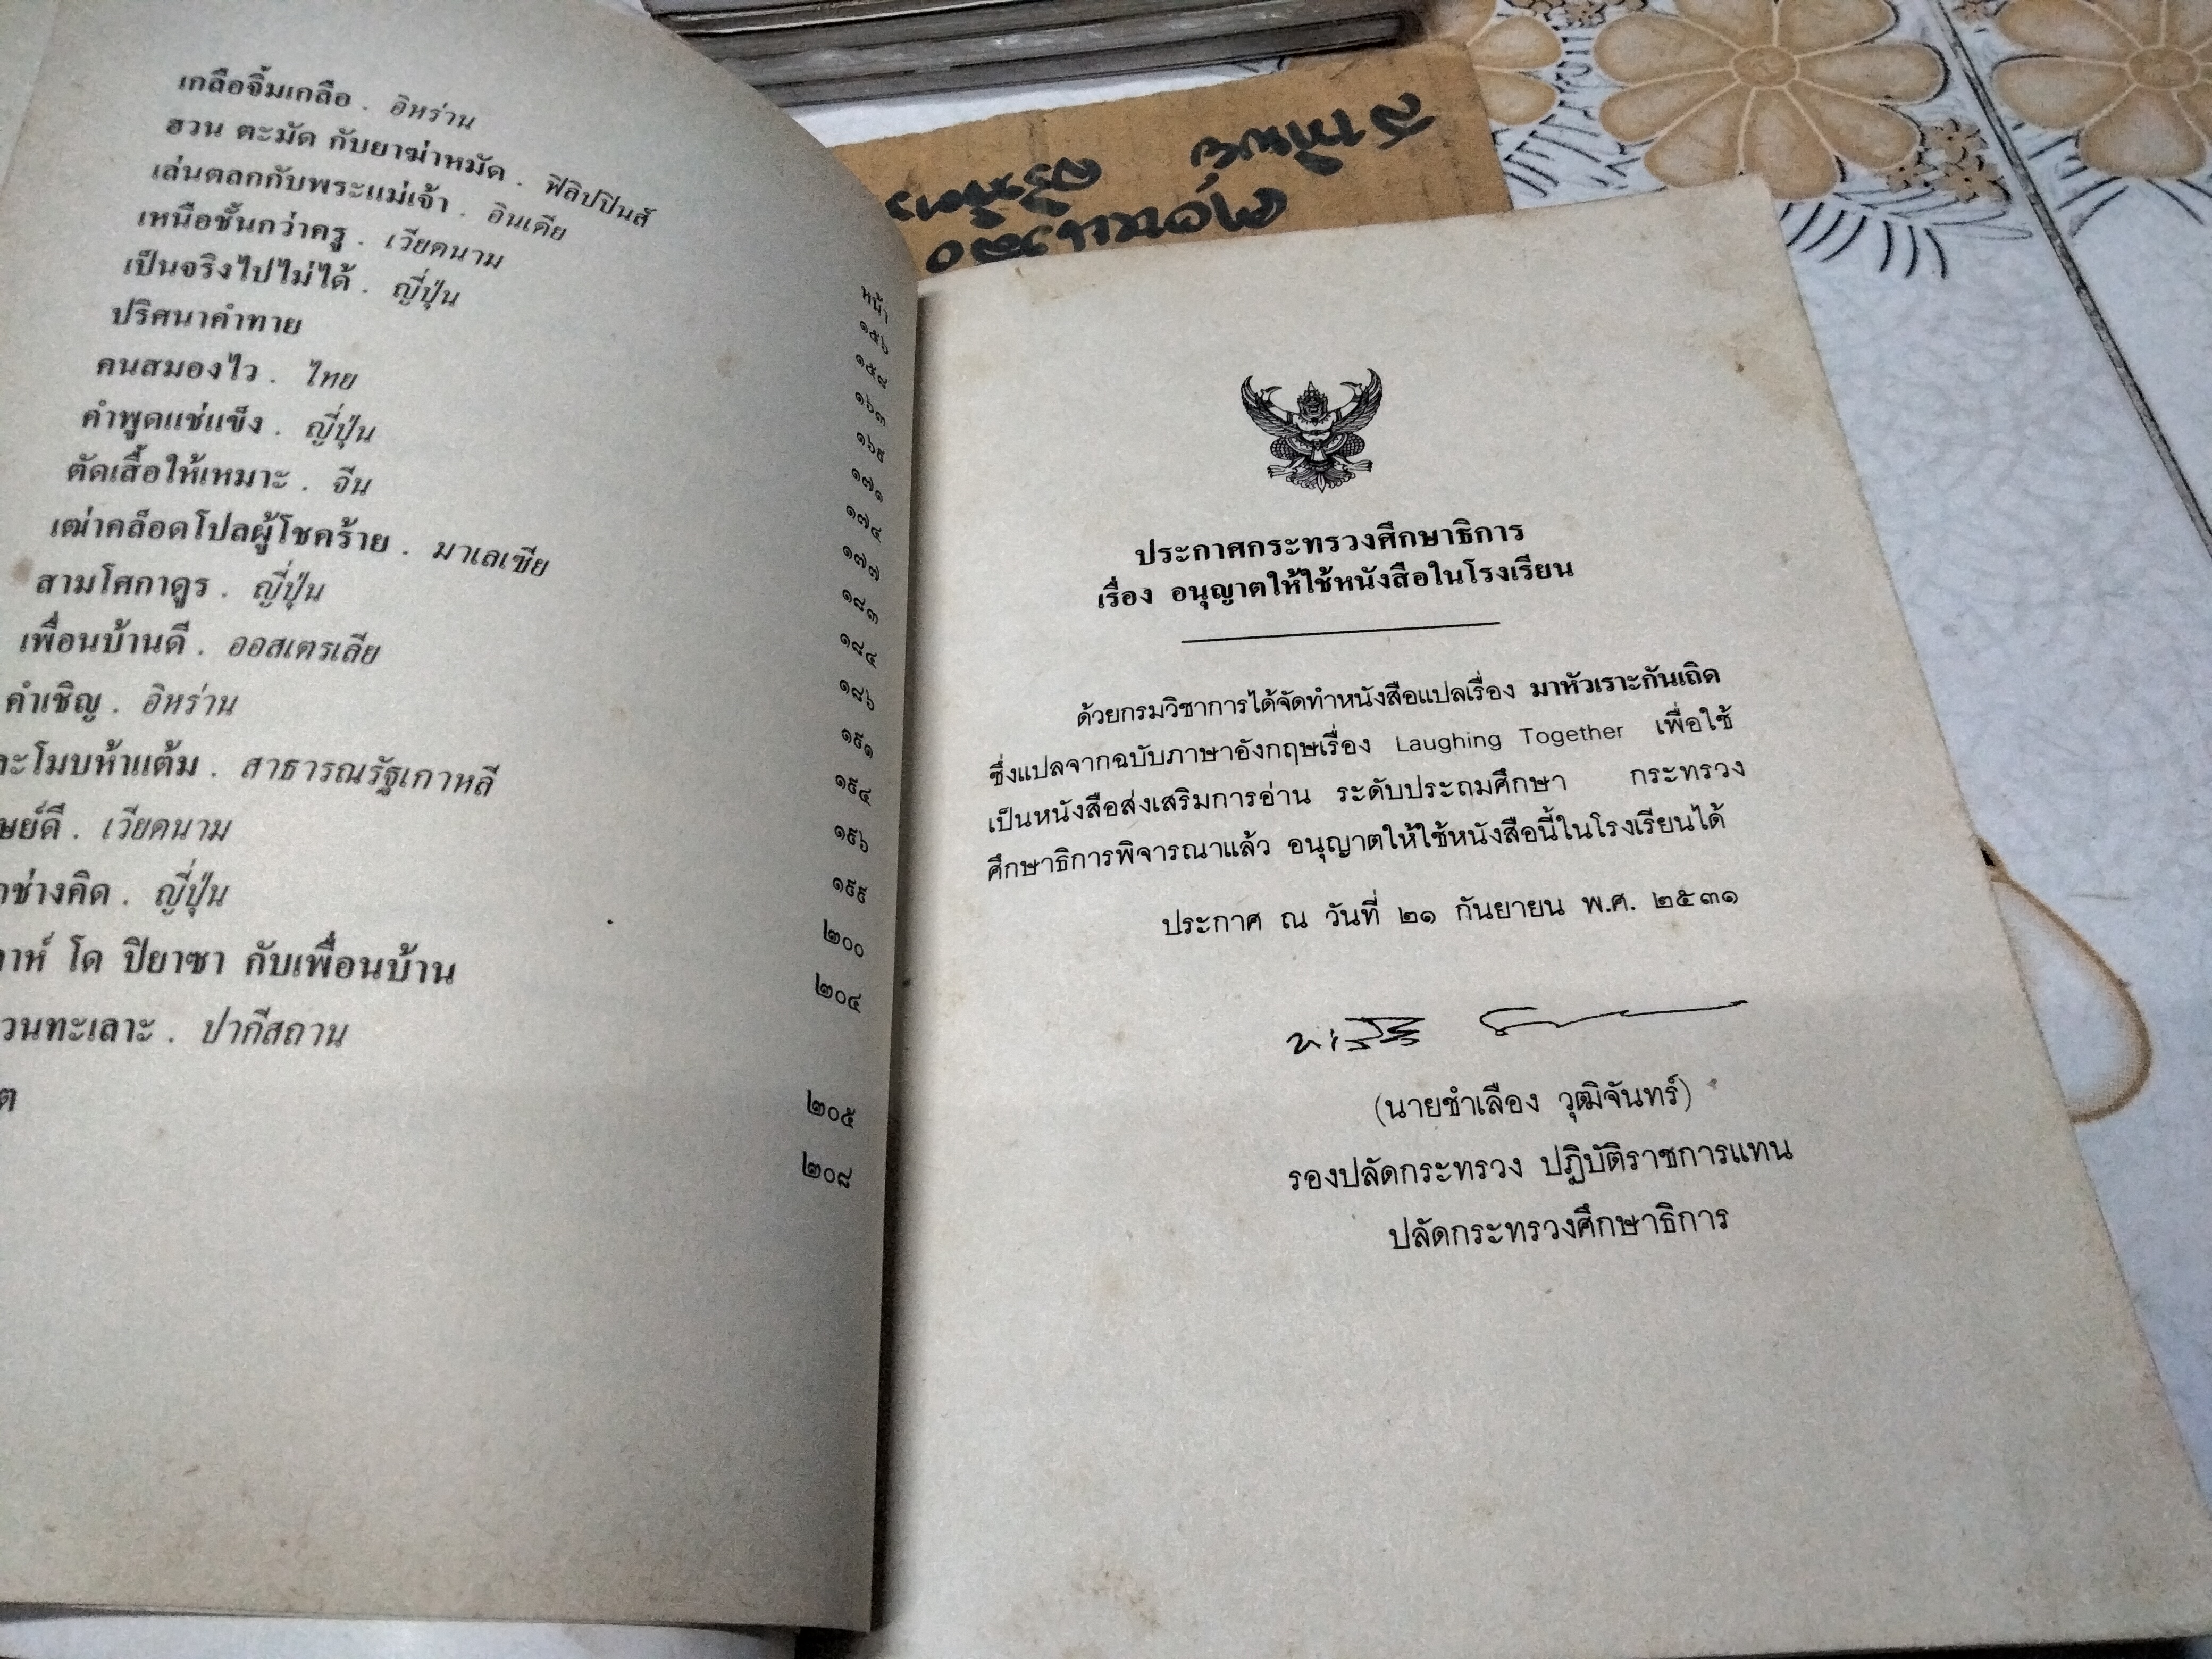 เกลือจิ้มเกลือ . อิหร่าน
ฮวน ตะมัด กับยาฆ่าหมัด . ฟิลิปปินส์
เล่นตลกกับพระแม่เจ้า . อินเดีย
เหนือชั้นกว่าครู . เวียดนาม
เป็นจริงไปไม่ได้ . ญี่ปุ่น
ปริศนาคำทาย
คนสมองไว . ไทย
คำพูดแช่แข็ง . ญี่ปุ่น
ตัดเสื้อให้เหมาะ . จีน
เฒ่าคล็อดโปลผู้โชคร้าย . มาเลเซีย
สามโศกาดูร . ญี่ปุ่น
เพื่อนบ้านดี . ออสเตรเลีย
คำเชิญ . อิหร่าน
โมบห้าแต้ม . สาธารณรัฐเกาหลี
ดี . เวียดนาม
ช่างคิด . ญี่ปุ่น
โด ปิยาซา กับเพื่อนบ้าน
วนทะเลาะ . ปากีสถาน
หน้า
๑๕๖
๑๕๘
๑๖๓
๑๖๙
๑๗๑
๑๗๔
๑๗๗
๑๘๓
๑๘๔
๑๘๖
๑๙๑
๑๙๔
๑๙๖
๑๙๙
๒๐๐
๒๐๔
๒๐๕
๒๐๘
ประกาศกระทรวงศึกษาธิการ
เรื่อง อนุญาตให้ใช้หนังสือในโรงเรียน
ด้วยกรมวิชาการได้จัดทำหนังสือแปลเรื่อง มาหัวเราะกันเถิด
ซึ่งแปลจากฉบับภาษาอังกฤษเรื่อง Laughing Together เพื่อใช้
เป็นหนังสือส่งเสริมการอ่าน ระดับประถมศึกษา กระทรวง
ศึกษาธิการพิจารณาแล้ว อนุญาตให้ใช้หนังสือนี้ในโรงเรียนได้
ประกาศ ณ วันที่ ๒๑ กันยายน พ.ศ. ๒๕๓๑
(นายชำเลือง วุฒิจันทร์)
รองปลัดกระทรวง ปฏิบัติราชการแทน
ปลัดกระทรวงศึกษาธิการ